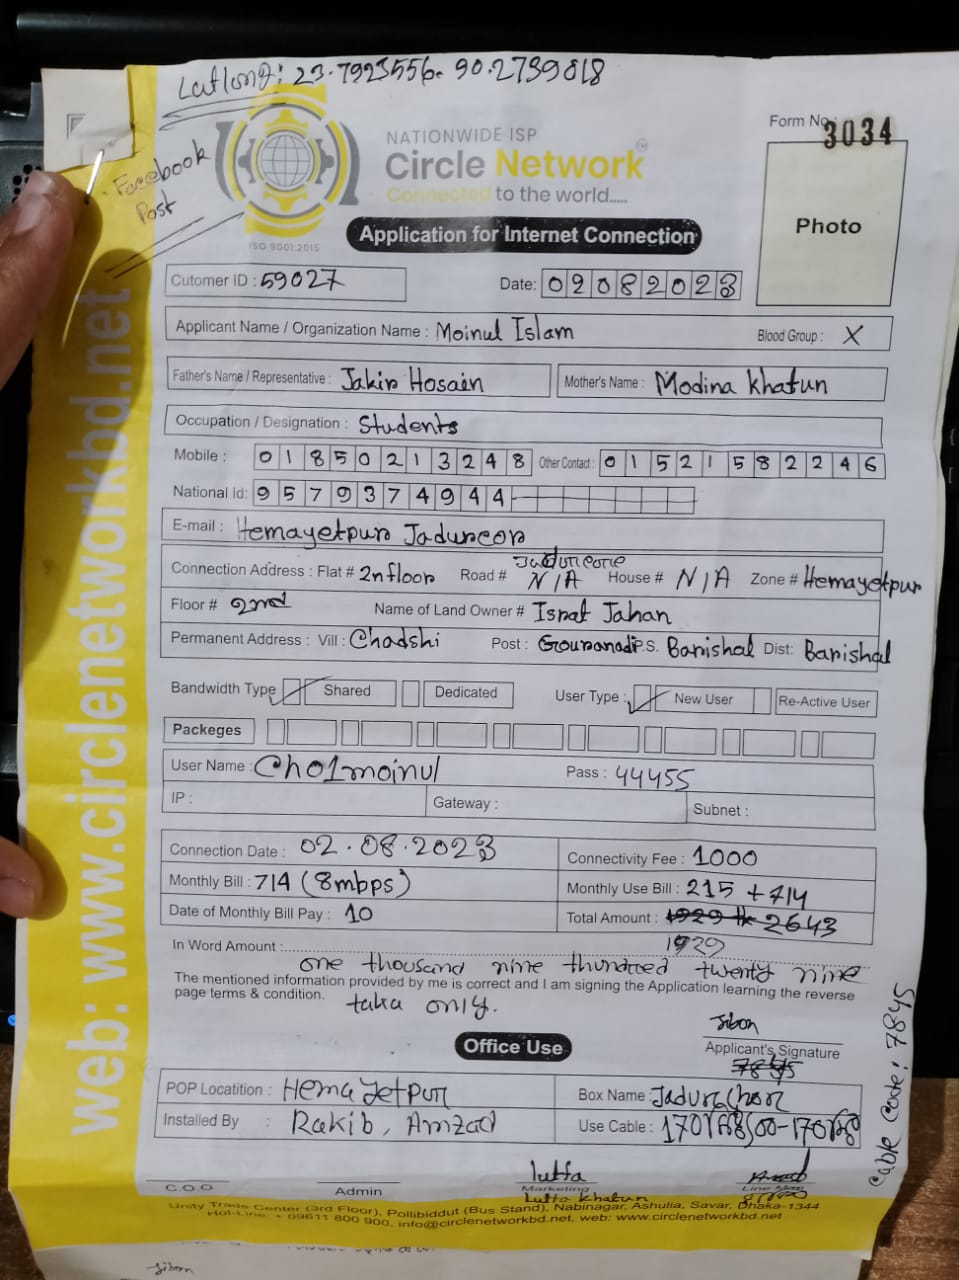 Latlong: 23.7923556. 90.2739818
Facebook
Post
NATIONWIDE ISP
Circle Network
Connected to the world.....
ISO 9001:2015
Form No.: 3034
Photo
Application for Internet Connection
Cutomer ID : 59027
Date: 02082023
Applicant Name / Organization Name : Moinul Islam Blood Group : X
Father's Name / Representative : Jakir Hosain Mother's Name : Modina Khatun
Occupation / Designation : Students
Mobile : 01850213248 Other Contact : 01521582246
National Id: 9579374944
E-mail : Hemayetpur Jadurcor
Connection Address : Flat # 2nfloor Road # N/A House # N/A Zone # Hemayetpur
Floor # 2nd Name of Land Owner # Israt Jahan
Permanent Address : Vill : Chadshi Post : Gournanadi P.S. Barishal Dist: Barishal
Bandwidth Type Shared Dedicated User Type : New User Re-Active User
Packeges
User Name : Cho1moinul Pass : 44455
IP : Gateway : Subnet :
Connection Date : 02.08.2023 Connectivity Fee : 1000
Monthly Bill : 714 (8mbps) Monthly Use Bill : 215 + 714
Date of Monthly Bill Pay : 10 Total Amount : 1929 tk 2643
1929
In Word Amount : one thousand nine thundred twenty nine
The mentioned information provided by me is correct and I am signing the Application learning the reverse
page terms & condition. taka only.
Jibon
Applicant's Signature
7845
Office Use
POP Locatition : Hemayetpur Box Name : Jadurchor
Installed By : Rakib, Amzad Use Cable :
Cable Code: 7845
lutfa
C.O.O Admin Marketing Line Man
Lutfa Khatun
Unity Trade Center (3rd Floor), Pollibiddut (Bus Stand), Nabinagar, Ashulia, Savar, Dhaka-1344
Hot-Line: + 09611 800 900, info@circlenetworkbd.net, web: www.circlenetworkbd.net
web: www.circlenetworkbd.net
Jibon